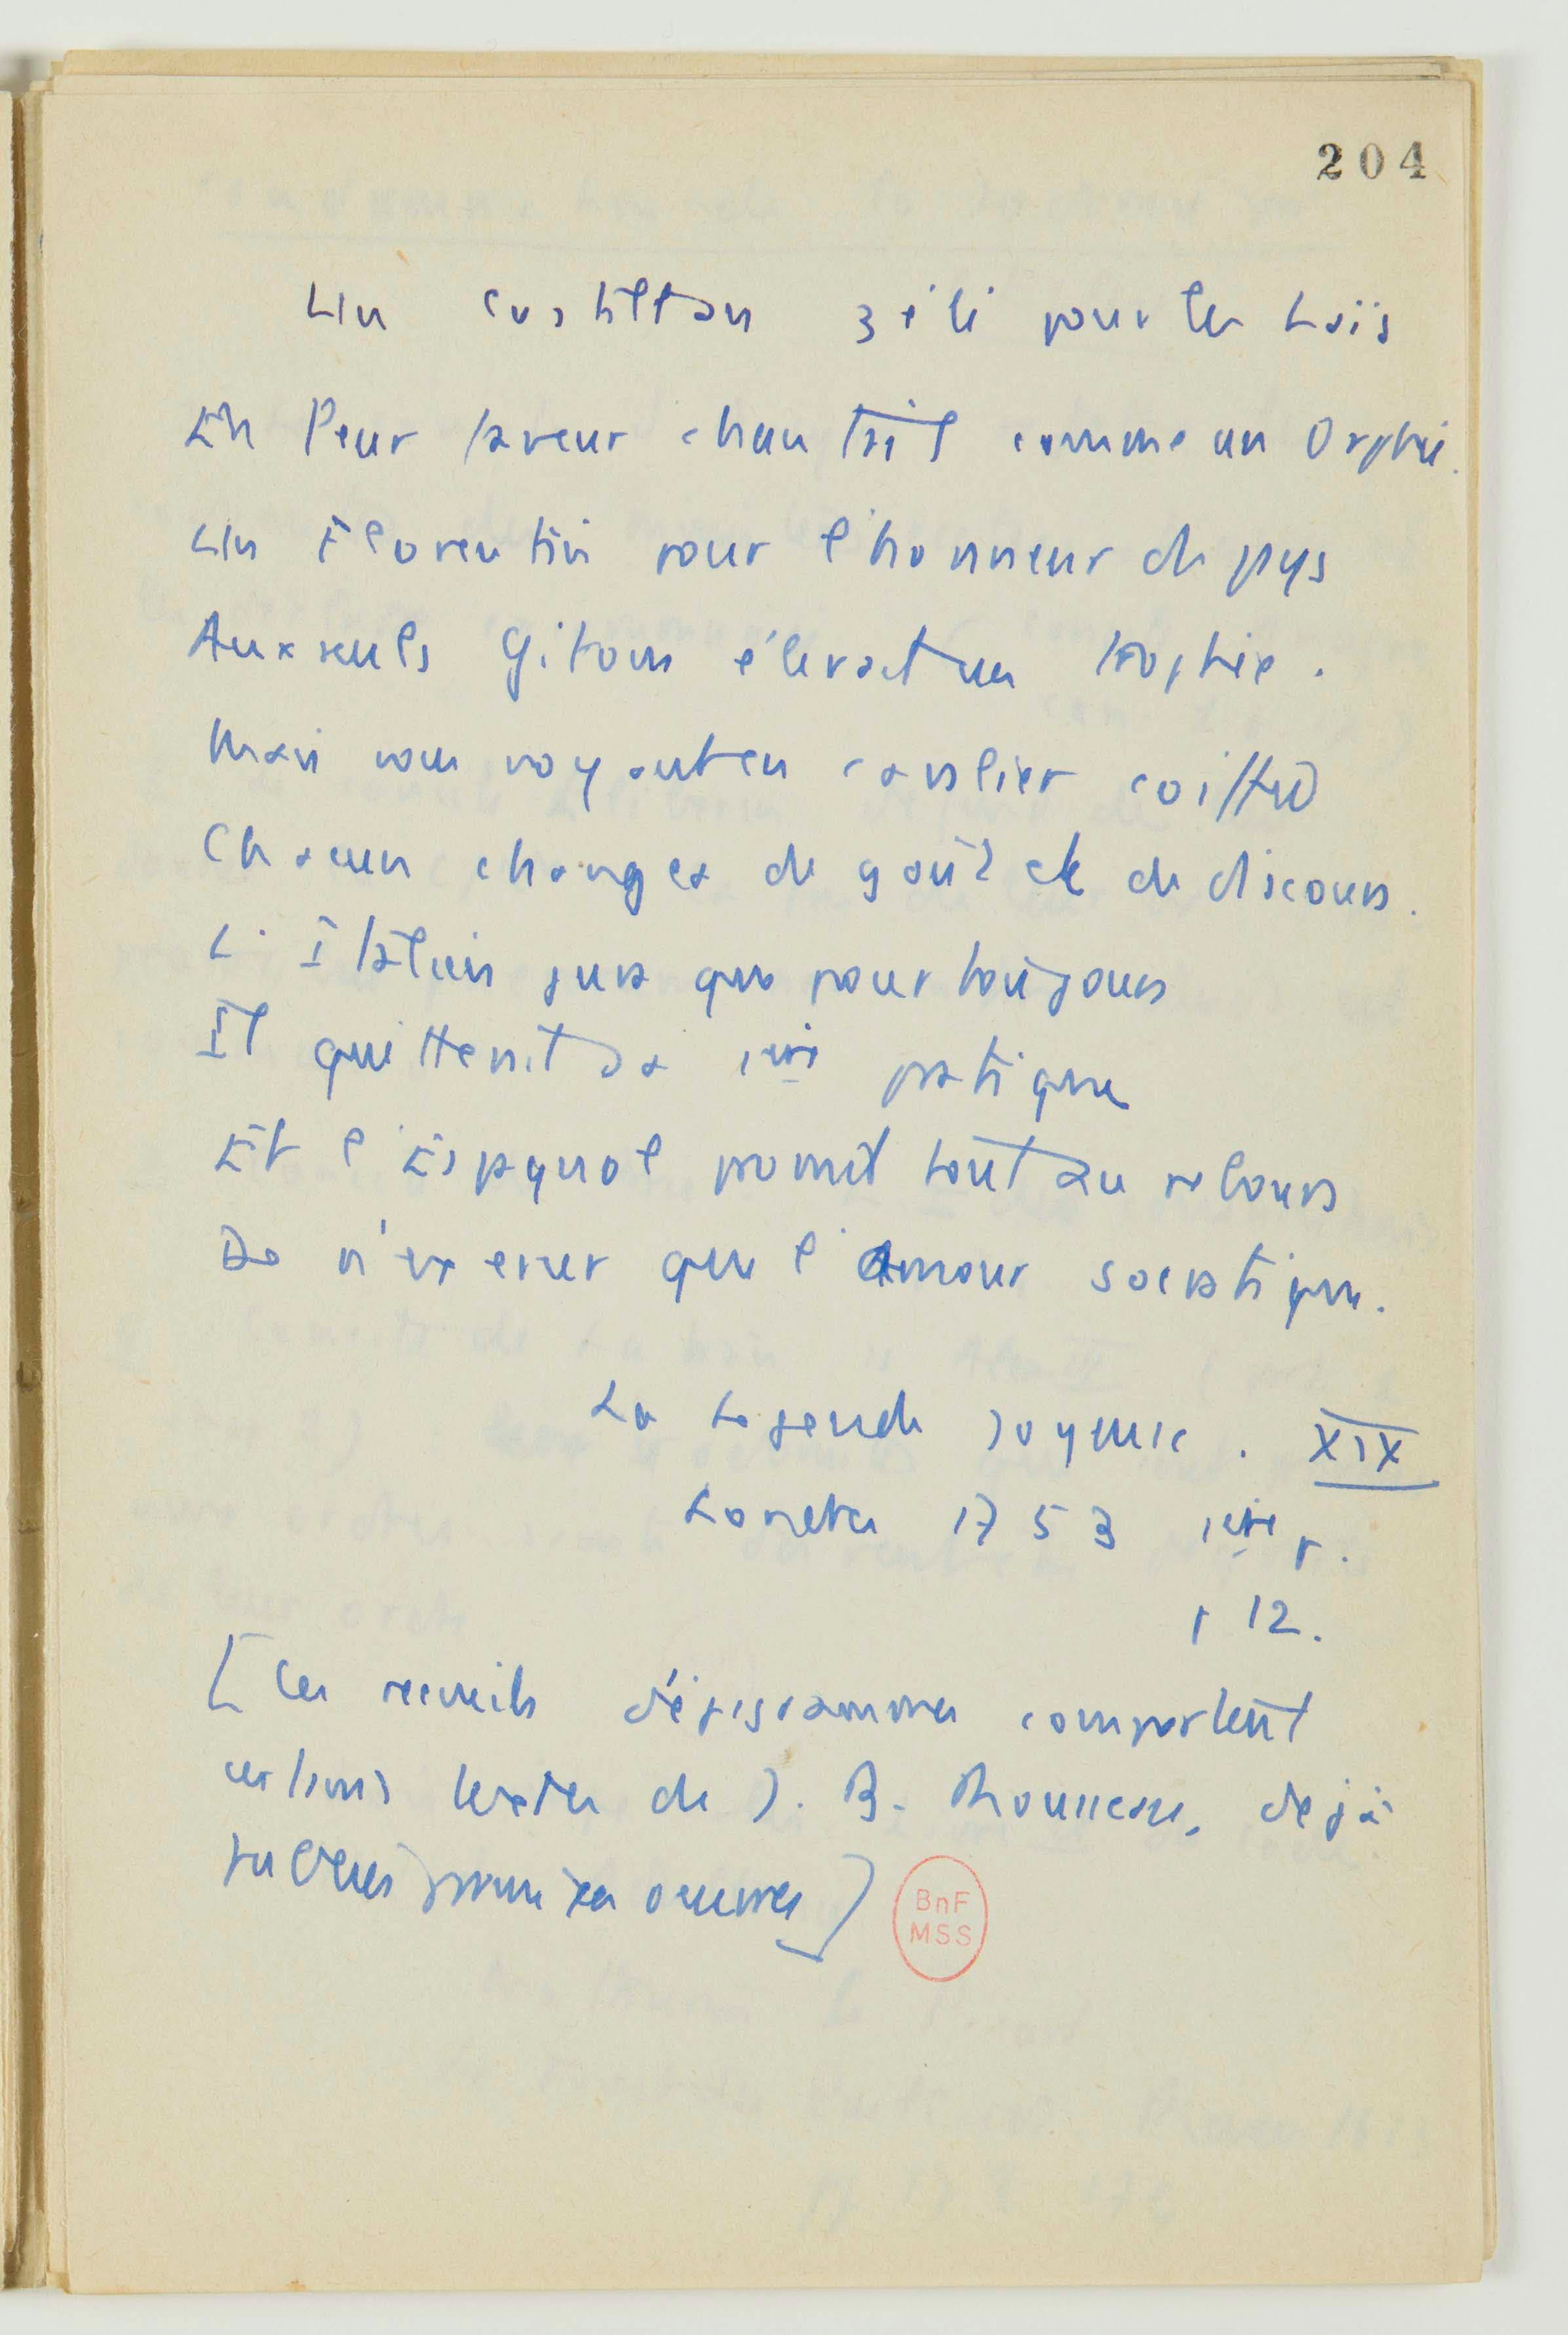 204
Un Castillan zélé pour les Laïs
En leur faveur chantait comme un Orphée.
Un Florentin pour l'honneur du pays
Aux seuls Gitons élevait un trophée.
Mais vous voyant en cavalier coiffé
Chacun changea de goût et de discours.
L'Italien jura que pour toujours
Il quitterait sa 1ère pratique
Et l'Espagnol promit tout au rebours
De n'exercer que l'amour socratique.
La Legende Joyeuse. XIX
Londres 1753 1ère p.
p 12.
[Ces recueils d'épigrammes comportent
certains textes de J. B. Rousseau, déjà
publiés parmi ses oeuvres]
BnF
MSS